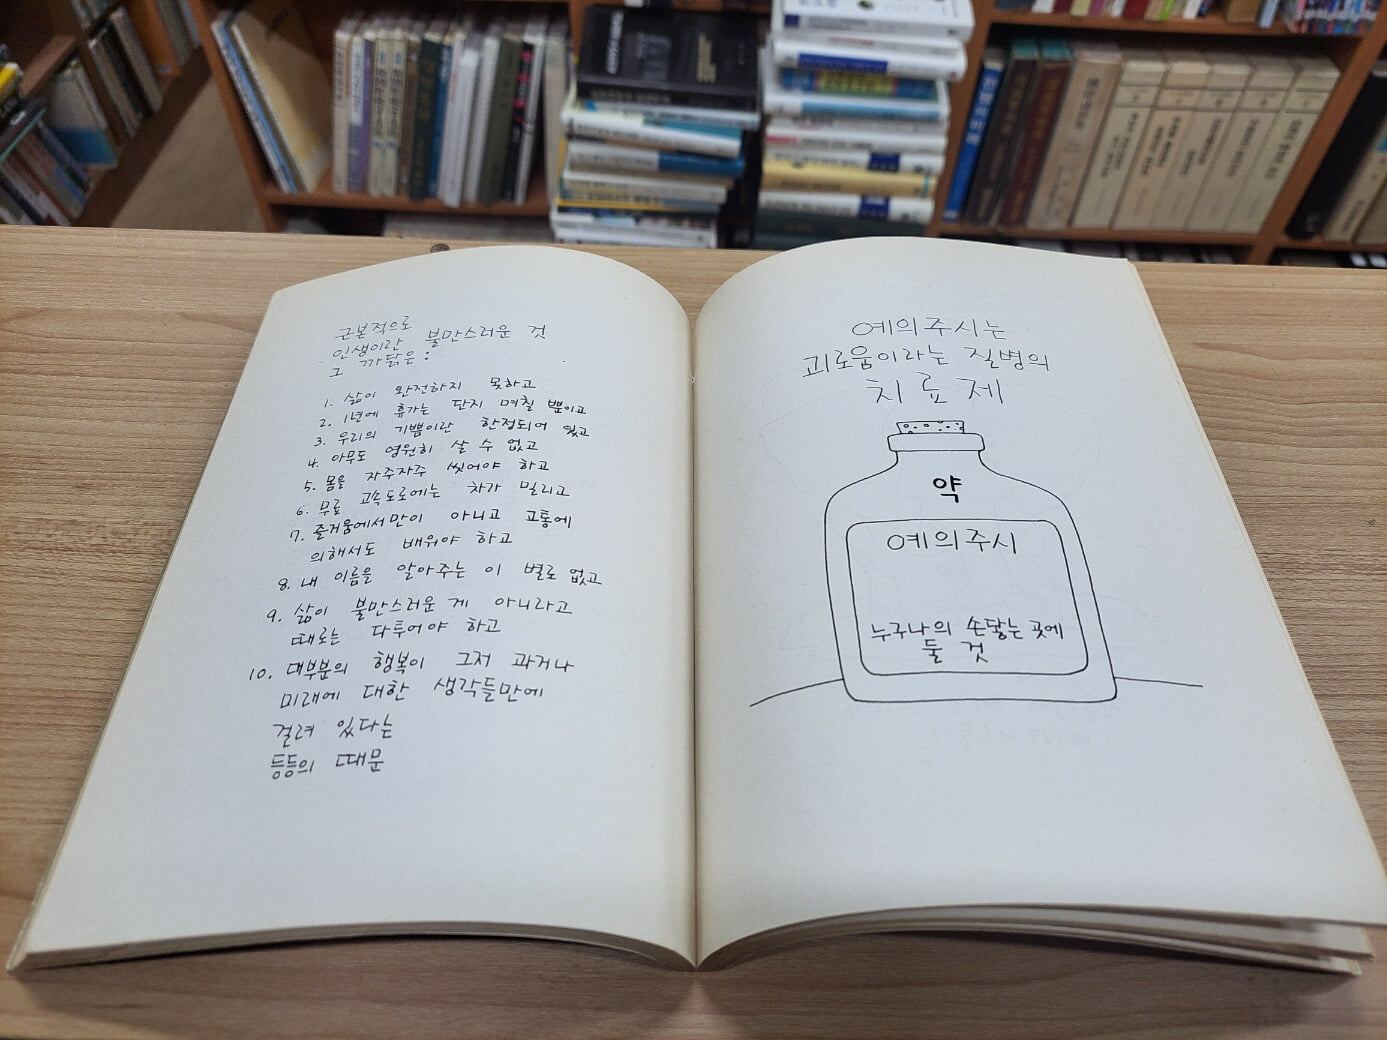 근본적으로
인생이란 불만스러운 것
그 까닭은 :
1. 삶이 완전하지 못하고
2. 1년에 휴가는 단지 며칠 뿐이고
3. 우리의 기쁨이란 한정되어 있고
4. 아무도 영원히 살 수 없고
5. 몸을 자주자주 씻어야 하고
6. 무료 고속도로에는 차가 밀리고
7. 즐거움에서만이 아니고 고통에
의해서도 배워야 하고
8. 내 이름을 알아주는 이 별로 없고
9. 삶이 불만스러운 게 아니라고
때로는 다투어야 하고
10. 대부분의 행복이 그저 과거나
미래에 대한 생각들만에
걸려 있다는
등등의 때문
예의주시는
괴로움이라는 질병의
치료제
약
예의주시
누구나의 손닿는 곳에
둘 것